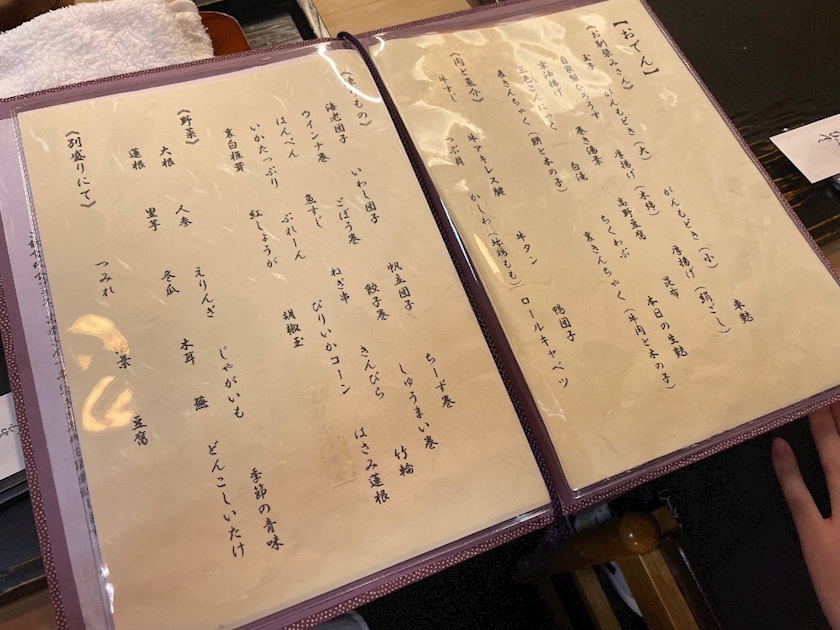 【おでん】
《お馴染みさん》
玉子 がんもどき(大) がんもどき(小) 車麩
自家製ひろうす 厚揚げ(木綿) 厚揚げ(絹ごし)
油揚げ 巻き湯葉 高野豆腐 昆布 本日の生麩
こんにゃく 白滝 ちくわぶ
きんちゃく(餅と木の子) きんちゃく(牛肉と木の子)
《肉と魚介》
牛すじ 牛アキレス腱 牛タン 鴨団子
つぶ貝 かしわ(地鶏もも) ロールキャベツ
《練りもの》
海老団子 いわし団子 帆立団子 ちーず巻
ウインナ巻 ごぼう巻 餃子巻 しゅうまい巻 竹輪
はんぺん 魚すじ ねぎ串 きんぴら はさみ蓮根
いかたっぷり ぷれーん ぴりいかコーン
裏白椎茸 紅しょうが 胡椒玉
《野菜》
大根 人参 えりんぎ じゃがいも 季節の青味
蓮根 里芋 冬瓜 木耳 蕪 どんこしいたけ
《別盛りにて》
つみれ 豆腐